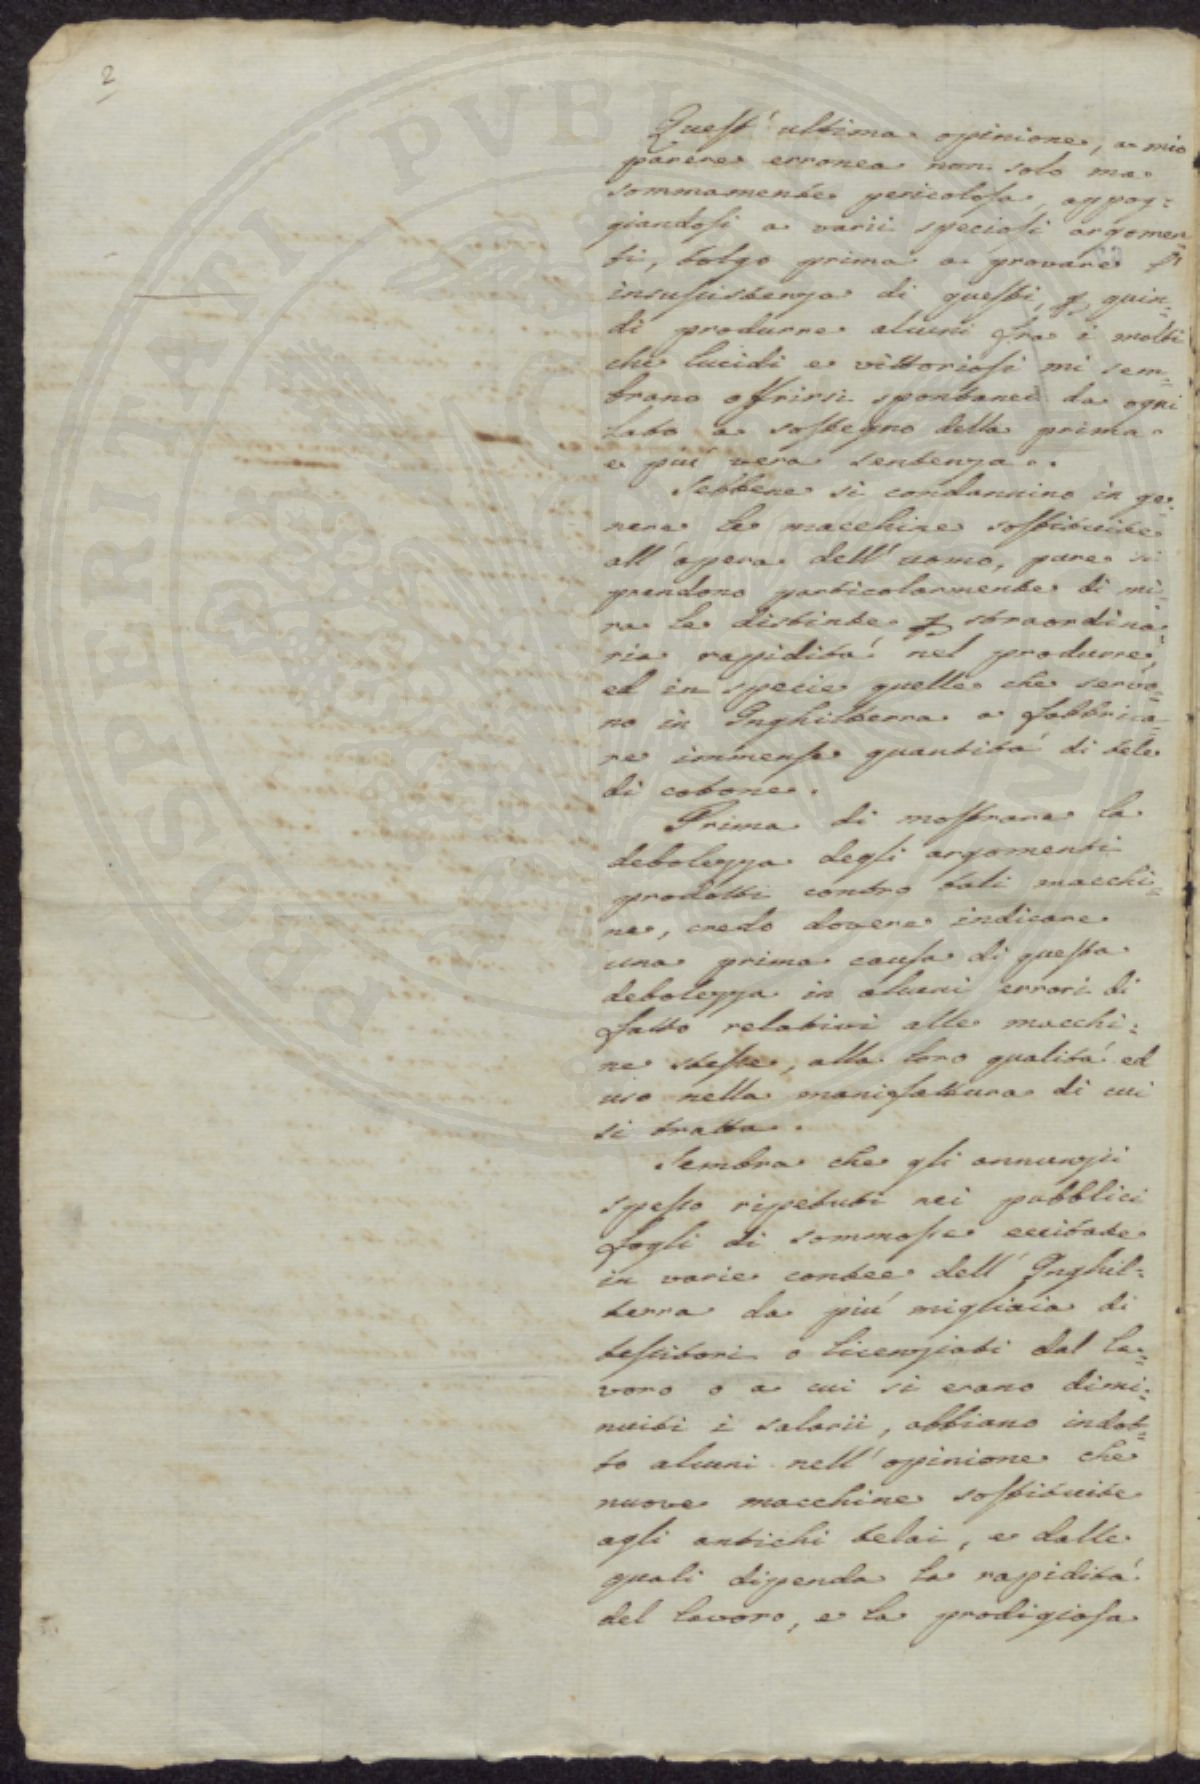 2
Quest' ultima opinione, a mio
parere erronea non solo ma
sommamente pericolosa, appog:
giandosi a varii speciosi argomen=
ti, tolgo prima a provare l'
insussistenza di questi, p quin=
di produrne alcuni fra i molti
che lucidi e vittoriosi mi sem=
brano offrirsi spontanei da ogni
lato a sostegno della prima
e più vera sentenza.
Sebbene si condannino in ge:
nere le macchine sostituite
all'opera dell'uomo, pure si
prendono particolarmente di mi:
ra le distinte p straordina:
ria rapidità nel produrre,
ed in specie quelle che servo=
no in Inghilterra a fabbrica=
re immense quantità di tele
di cotone.
Prima di mostrare la
debolezza degli argomenti
prodotti contro tali macchi=
ne, credo dovere indicare
una prima causa di questa
debolezza in alcuni errori di
fatto relativi alle macchi:
ne stesse, alla loro qualità ed
uso nella manifattura di cui
si tratta.
Sembra che gli annunzii
spesso ripetuti nei pubblici
fogli di sommosse eccitate
in varie contee dell'Inghil:
terra da più migliaia di
tessitori o licenziati dal la=
voro o a cui si erano dimi:
nuiti i salarii, abbiano indot=
to alcuni nell'opinione che
nuove macchine sostituite
agli antichi telai, e dalle
quali dipenda la rapidità
del lavoro, e la prodigiosa
PROSPERITATI PVBLICAE